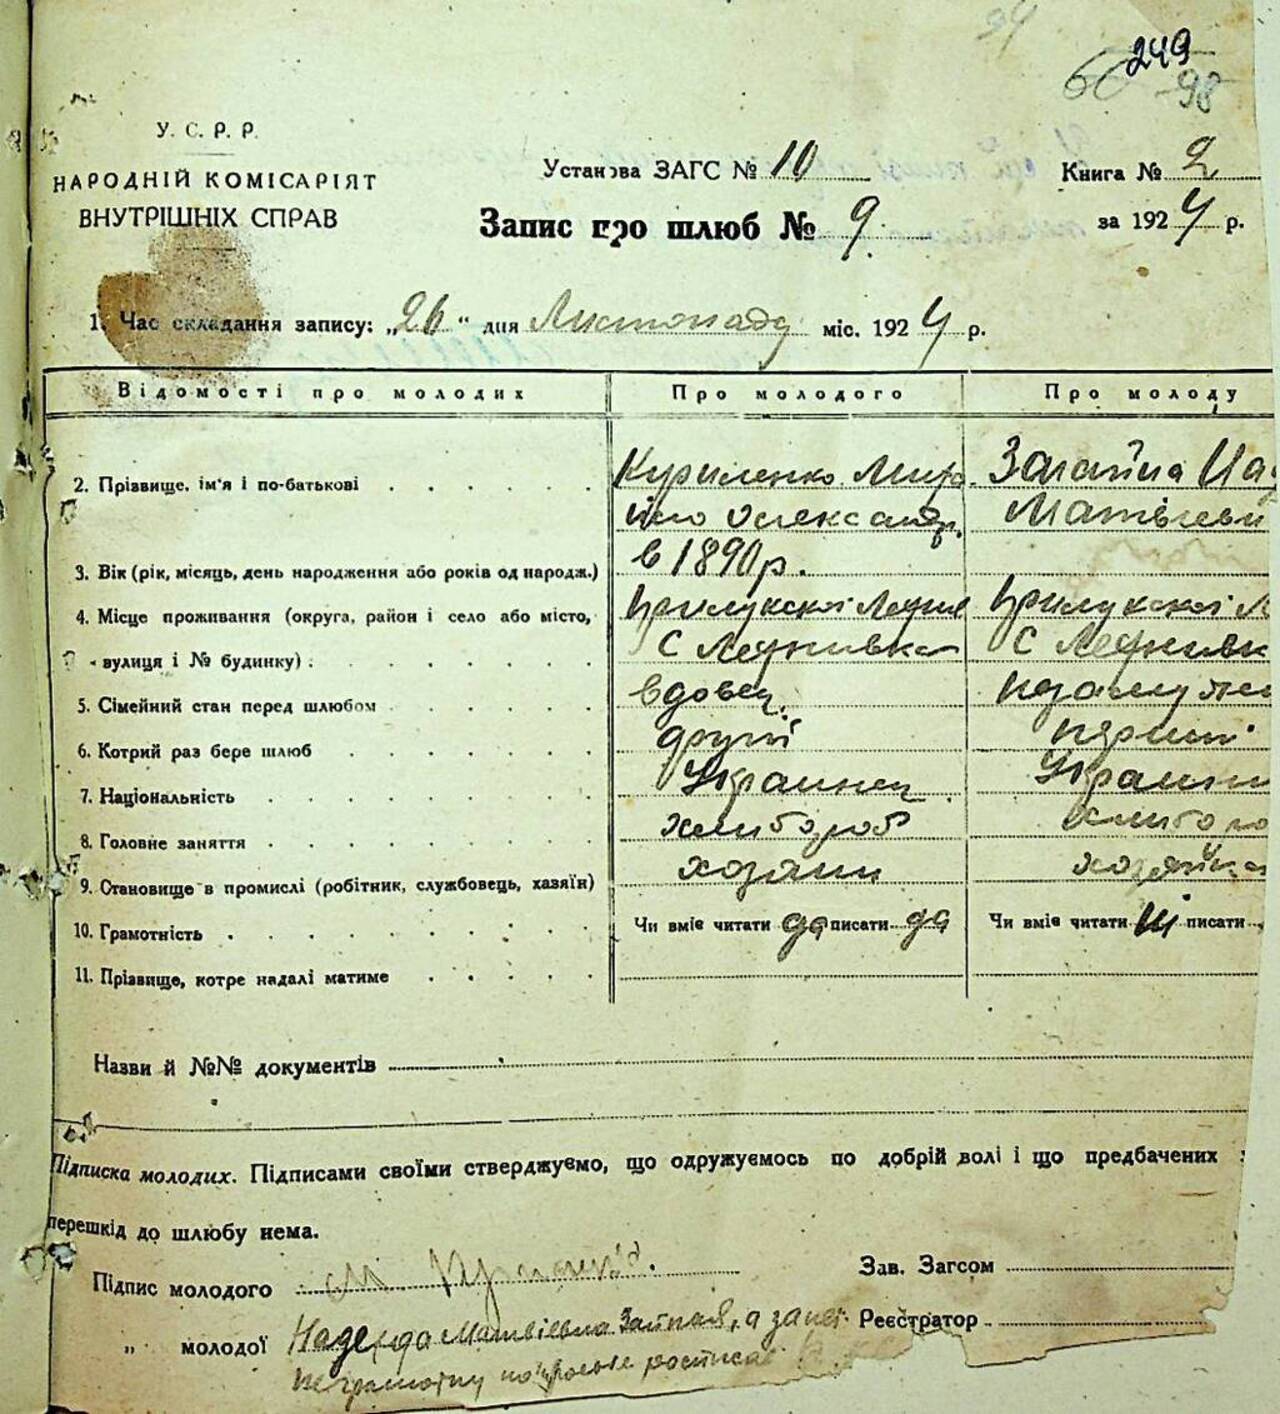 249
60 98
У. С. Р. Р.
НАРОДНІЙ КОМІСАРІЯТ
ВНУТРІШНІХ СПРАВ
Установа ЗАГС № 10
Книга № 2
Запис про шлюб № 9.
за 1924 р.
1. Час складання запису: „26“ дня Листопаду міс. 1924 р.
Відомості про молодих Про молодого Про молоду
2. Прізвище, ім'я і по-батькові Куриленко
Матвіеви
3. Вік (рік, місяць, день народження або років од народж.) в 1890 р.
4. Місце проживання (округа, район і село або місто, Прилукскої Прилукскої
вулиця і № будинку) : С С
5. Сімейний стан перед шлюбом вдовец.
6. Котрий раз бере шлюб другі перши
7. Національність Украинец Украин
8. Головне заняття хлибороб хлиборо
9. Становище в промислі (робітник, службовець, хазяїн) хозяин хозяйка
10. Грамотність Чи вміє читати да писати да Чи вміє читати ні писати
11. Прізвище, котре надалі матиме
Назви й №№ документів
Підписка молодих. Підписами своїми стверджуємо, що одружуємось по добрій волі і що предбачених
перешкід до шлюбу нема.
Підпис молодого М
Зав. Загсом
„ молодої Надежда Матвіевна, а за нее
Реєстратор
неграмотну росписался